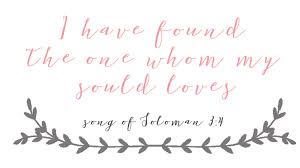 I have found
the one whom my
sould loves
song of Soloman 3:4